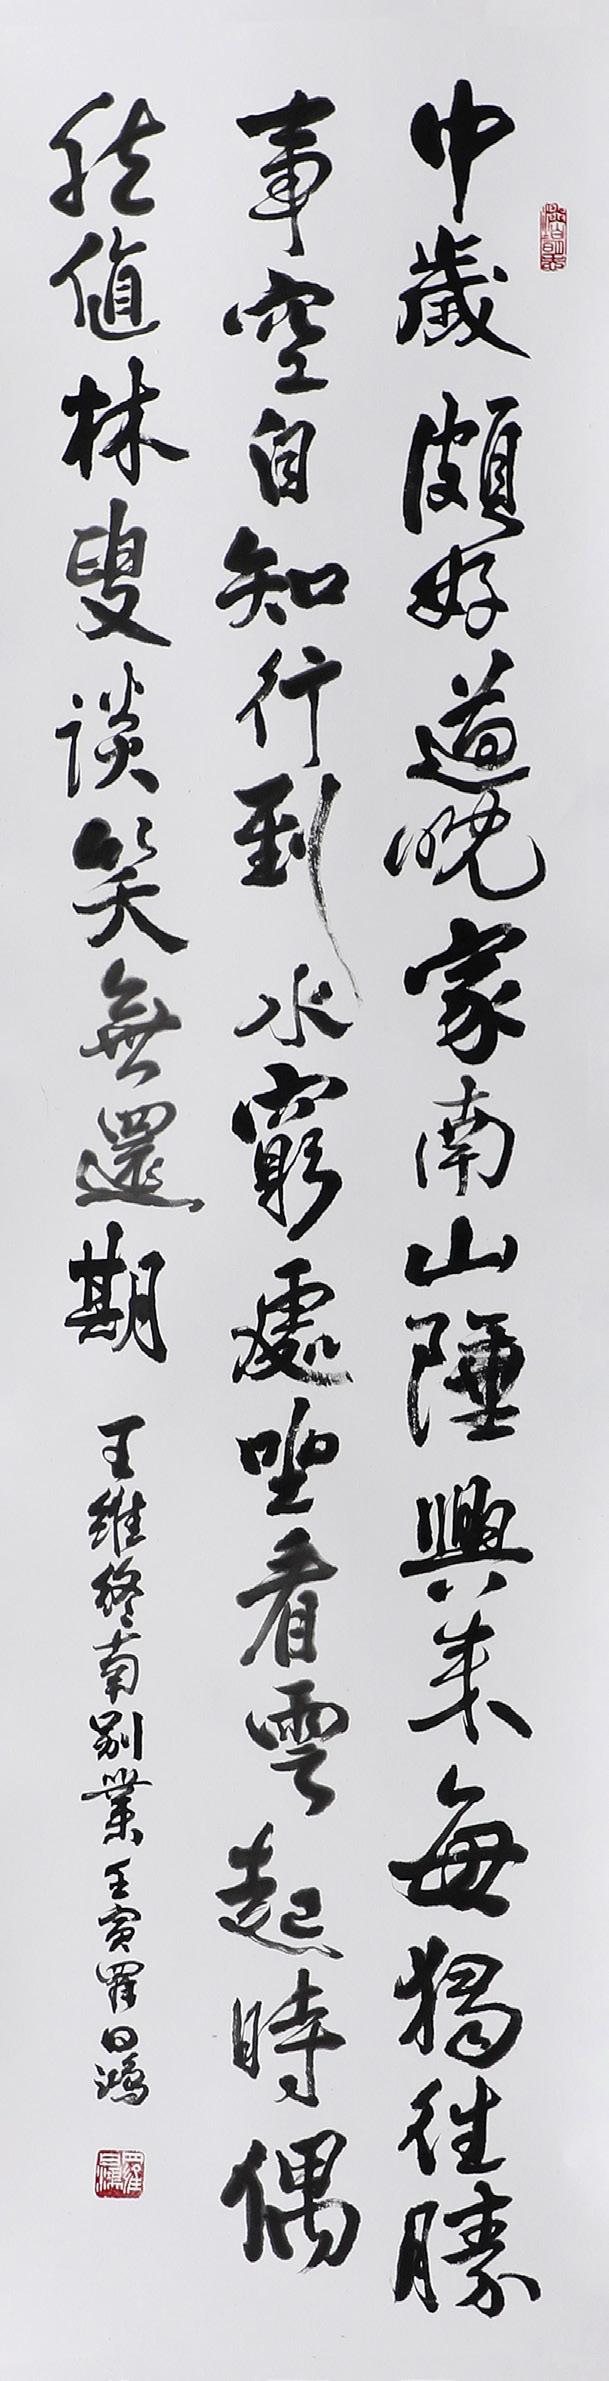 中歲頗好道晚家南山陲興來每獨往勝
事空自知行到水窮處坐看雲起時偶
然值林叟談笑無還期
王維終南別業壬寅羅日鴻
羅日鴻